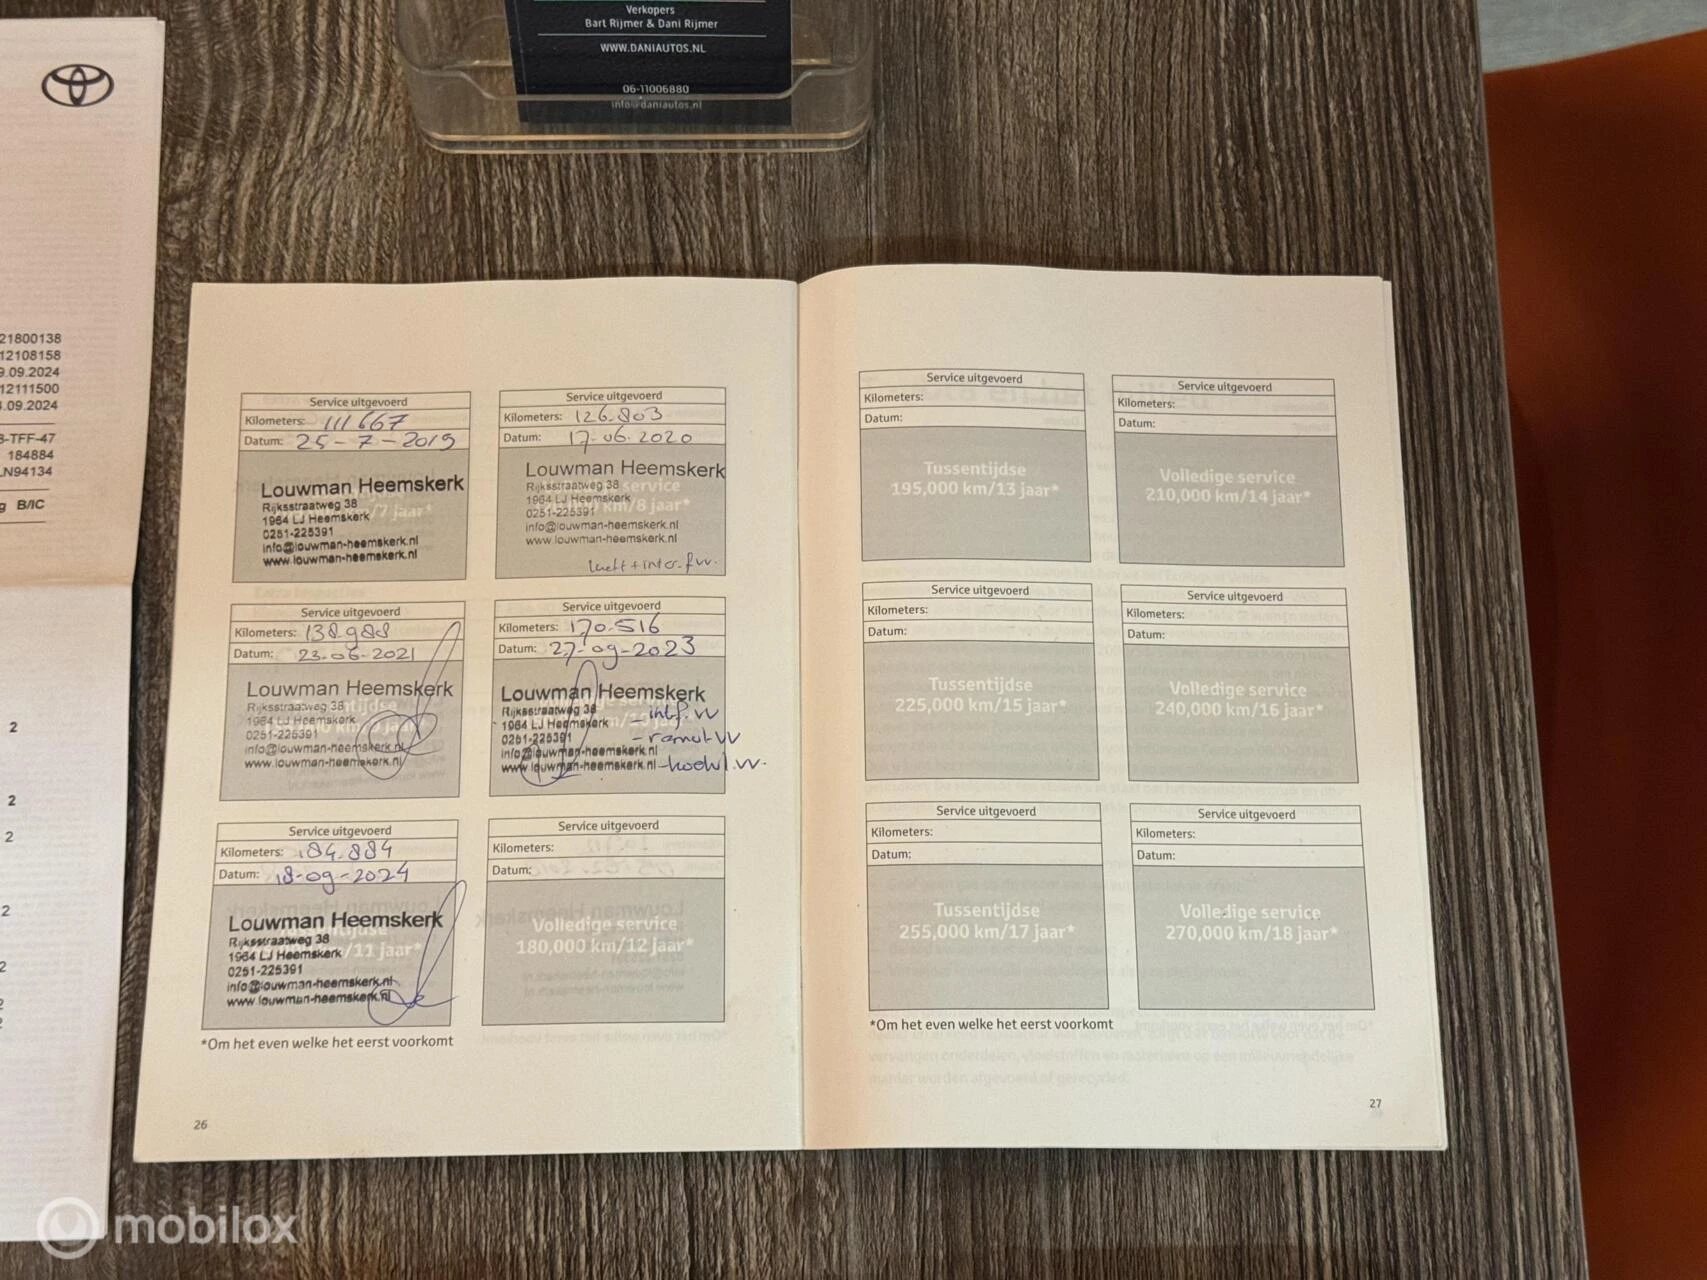 Verkopers
Bart Rijmer & Dani Rijmer
WWW.DANIAUTOS.NL
06-11006880
info@daniautos.nl
21800138
12108158
9.09.2024
12111500
.09.2024
-TFF-47
184884
LN94134
g B/IC
2
2
2
2
2
2
2
Service uitgevoerd
Kilometers: 111667
Datum: 25-7-2019
Louwman Heemskerk
Rijksstraatweg 38
1964 LJ Heemskerk
0251-225391
info@louwman-heemskerk.nl
www.louwman-heemskerk.nl
/7 jaar*
Service uitgevoerd
Kilometers: 126.803
Datum: 17-06-2020
Louwman Heemskerk
Rijksstraatweg 38
1964 LJ Heemskerk
0251-225391
info@louwman-heemskerk.nl
www.louwman-heemskerk.nl
service
km/8 jaar*
Service uitgevoerd
Kilometers: 138.988
Datum: 23-06-2021
Louwman Heemskerk
Rijksstraatweg 38
1964 LJ Heemskerk
0251-225391
info@louwman-heemskerk.nl
www.louwman-heemskerk.nl
Service uitgevoerd
Kilometers: 170.516
Datum: 27-09-2023
Louwman Heemskerk
Rijksstraatweg 38
1964 LJ Heemskerk
0251-225391
info@louwman-heemskerk.nl
www.louwman-heemskerk.nl
- intf. vv
- remvl vv
- koelvl. vv.
Service uitgevoerd
Kilometers: 184.884
Datum: 18-09-2024
Louwman Heemskerk
Rijksstraatweg 38
1964 LJ Heemskerk
0251-225391
info@louwman-heemskerk.nl
www.louwman-heemskerk.nl
km/11 jaar*
Service uitgevoerd
Kilometers:
Datum:
Volledige service
180,000 km/12 jaar*
*Om het even welke het eerst voorkomt
26
Service uitgevoerd
Kilometers:
Datum:
Tussentijdse
195,000 km/13 jaar*
Service uitgevoerd
Kilometers:
Datum:
Volledige service
210,000 km/14 jaar*
Service uitgevoerd
Kilometers:
Datum:
Tussentijdse
225,000 km/15 jaar*
Service uitgevoerd
Kilometers:
Datum:
Volledige service
240,000 km/16 jaar*
Service uitgevoerd
Kilometers:
Datum:
Tussentijdse
255,000 km/17 jaar*
Service uitgevoerd
Kilometers:
Datum:
Volledige service
270,000 km/18 jaar*
*Om het even welke het eerst voorkomt
27
mobilox